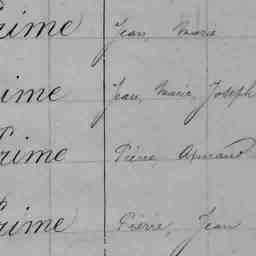 Prime Jean, Marie
Prime Jean, Marie, Joseph
Prime Pierre, Armand
Prime Pierre, Jean